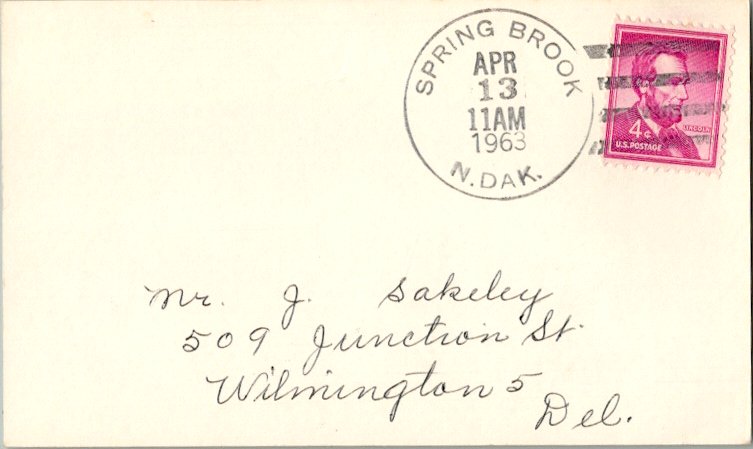 SPRING BROOK
APR
13
11AM
1963
N.DAK.
LINCOLN
4¢
U.S. POSTAGE
Mr. J. Sakeley
509 Junction St.
Wilmington 5
Del.